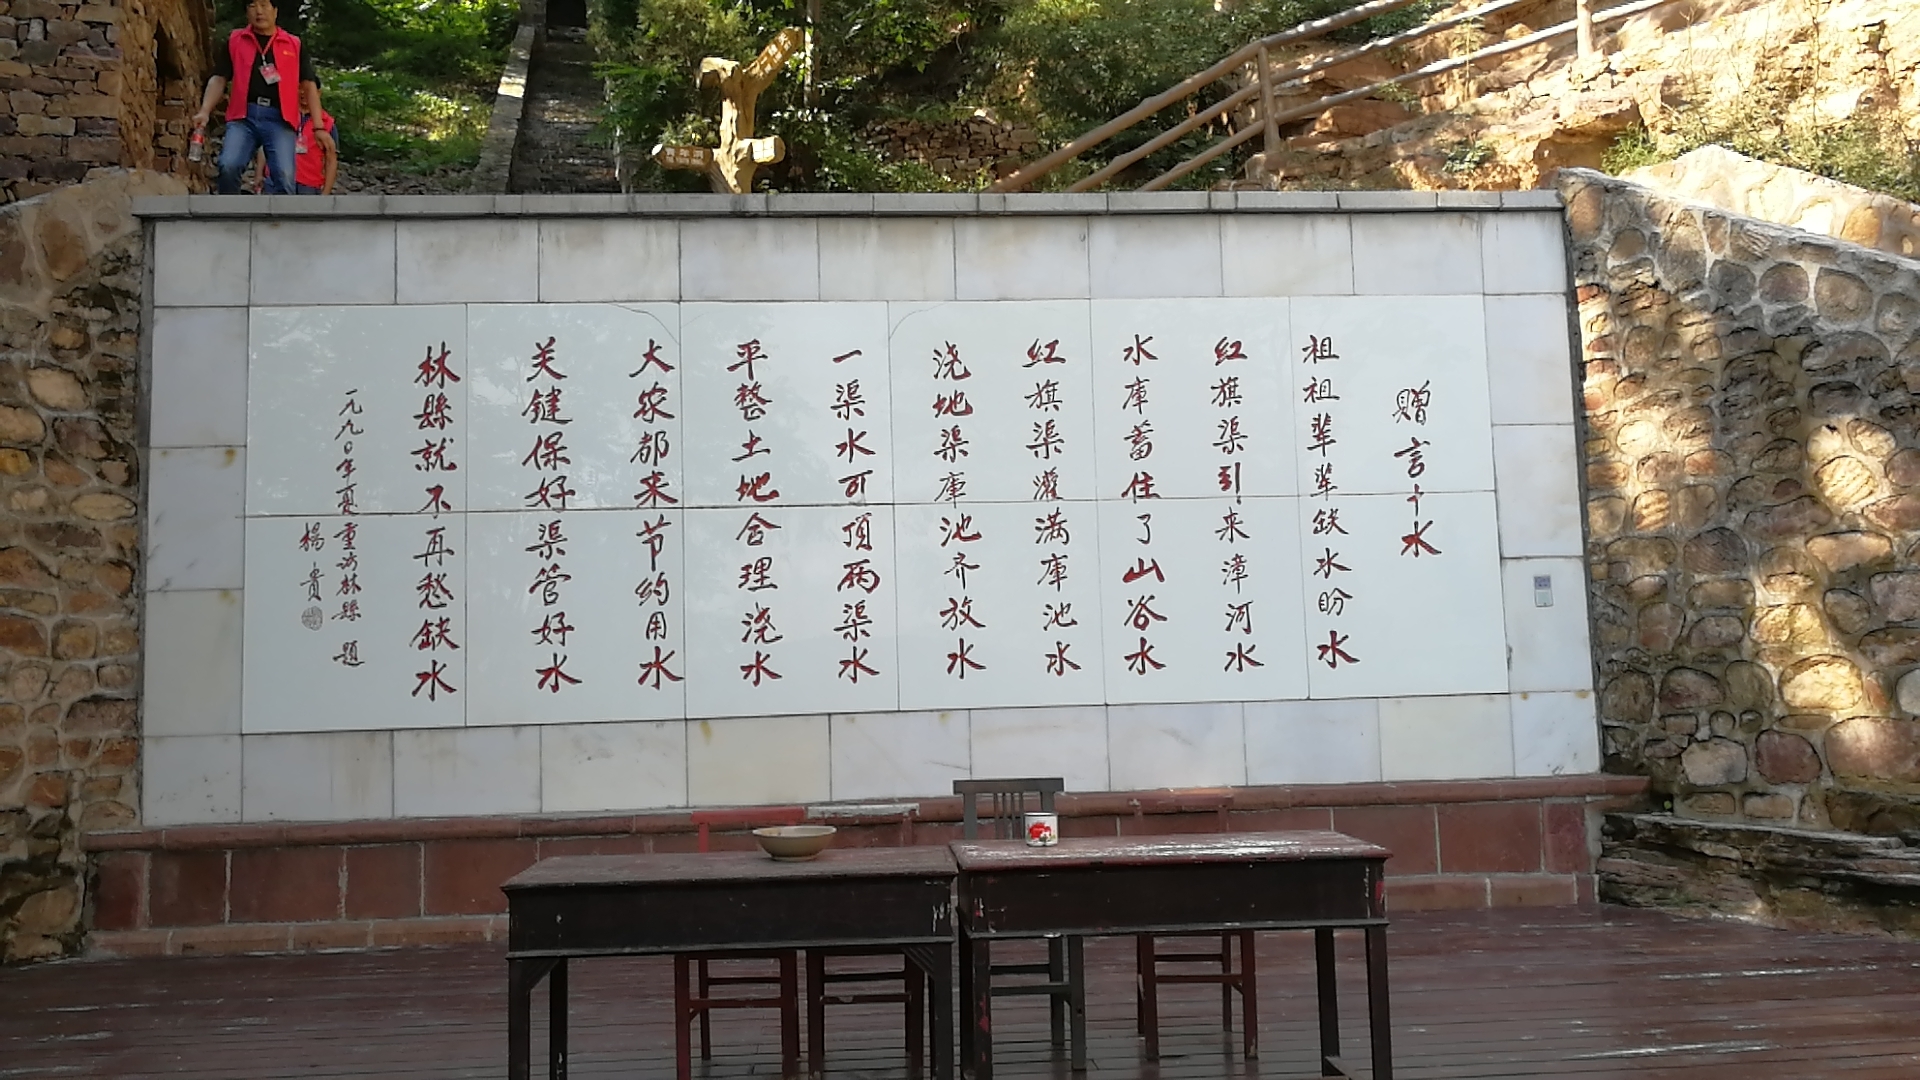 赠言十水
祖祖辈辈缺水盼水
红旗渠引来漳河水
水库蓄住了山谷水
红旗渠灌满库池水
浇地渠库池齐放水
一渠水可顶两渠水
平整土地合理浇水
大家都来节约用水
关键保好渠管好水
林縣就不再愁缺水
一九九〇年夏重访林縣 题
楊贵